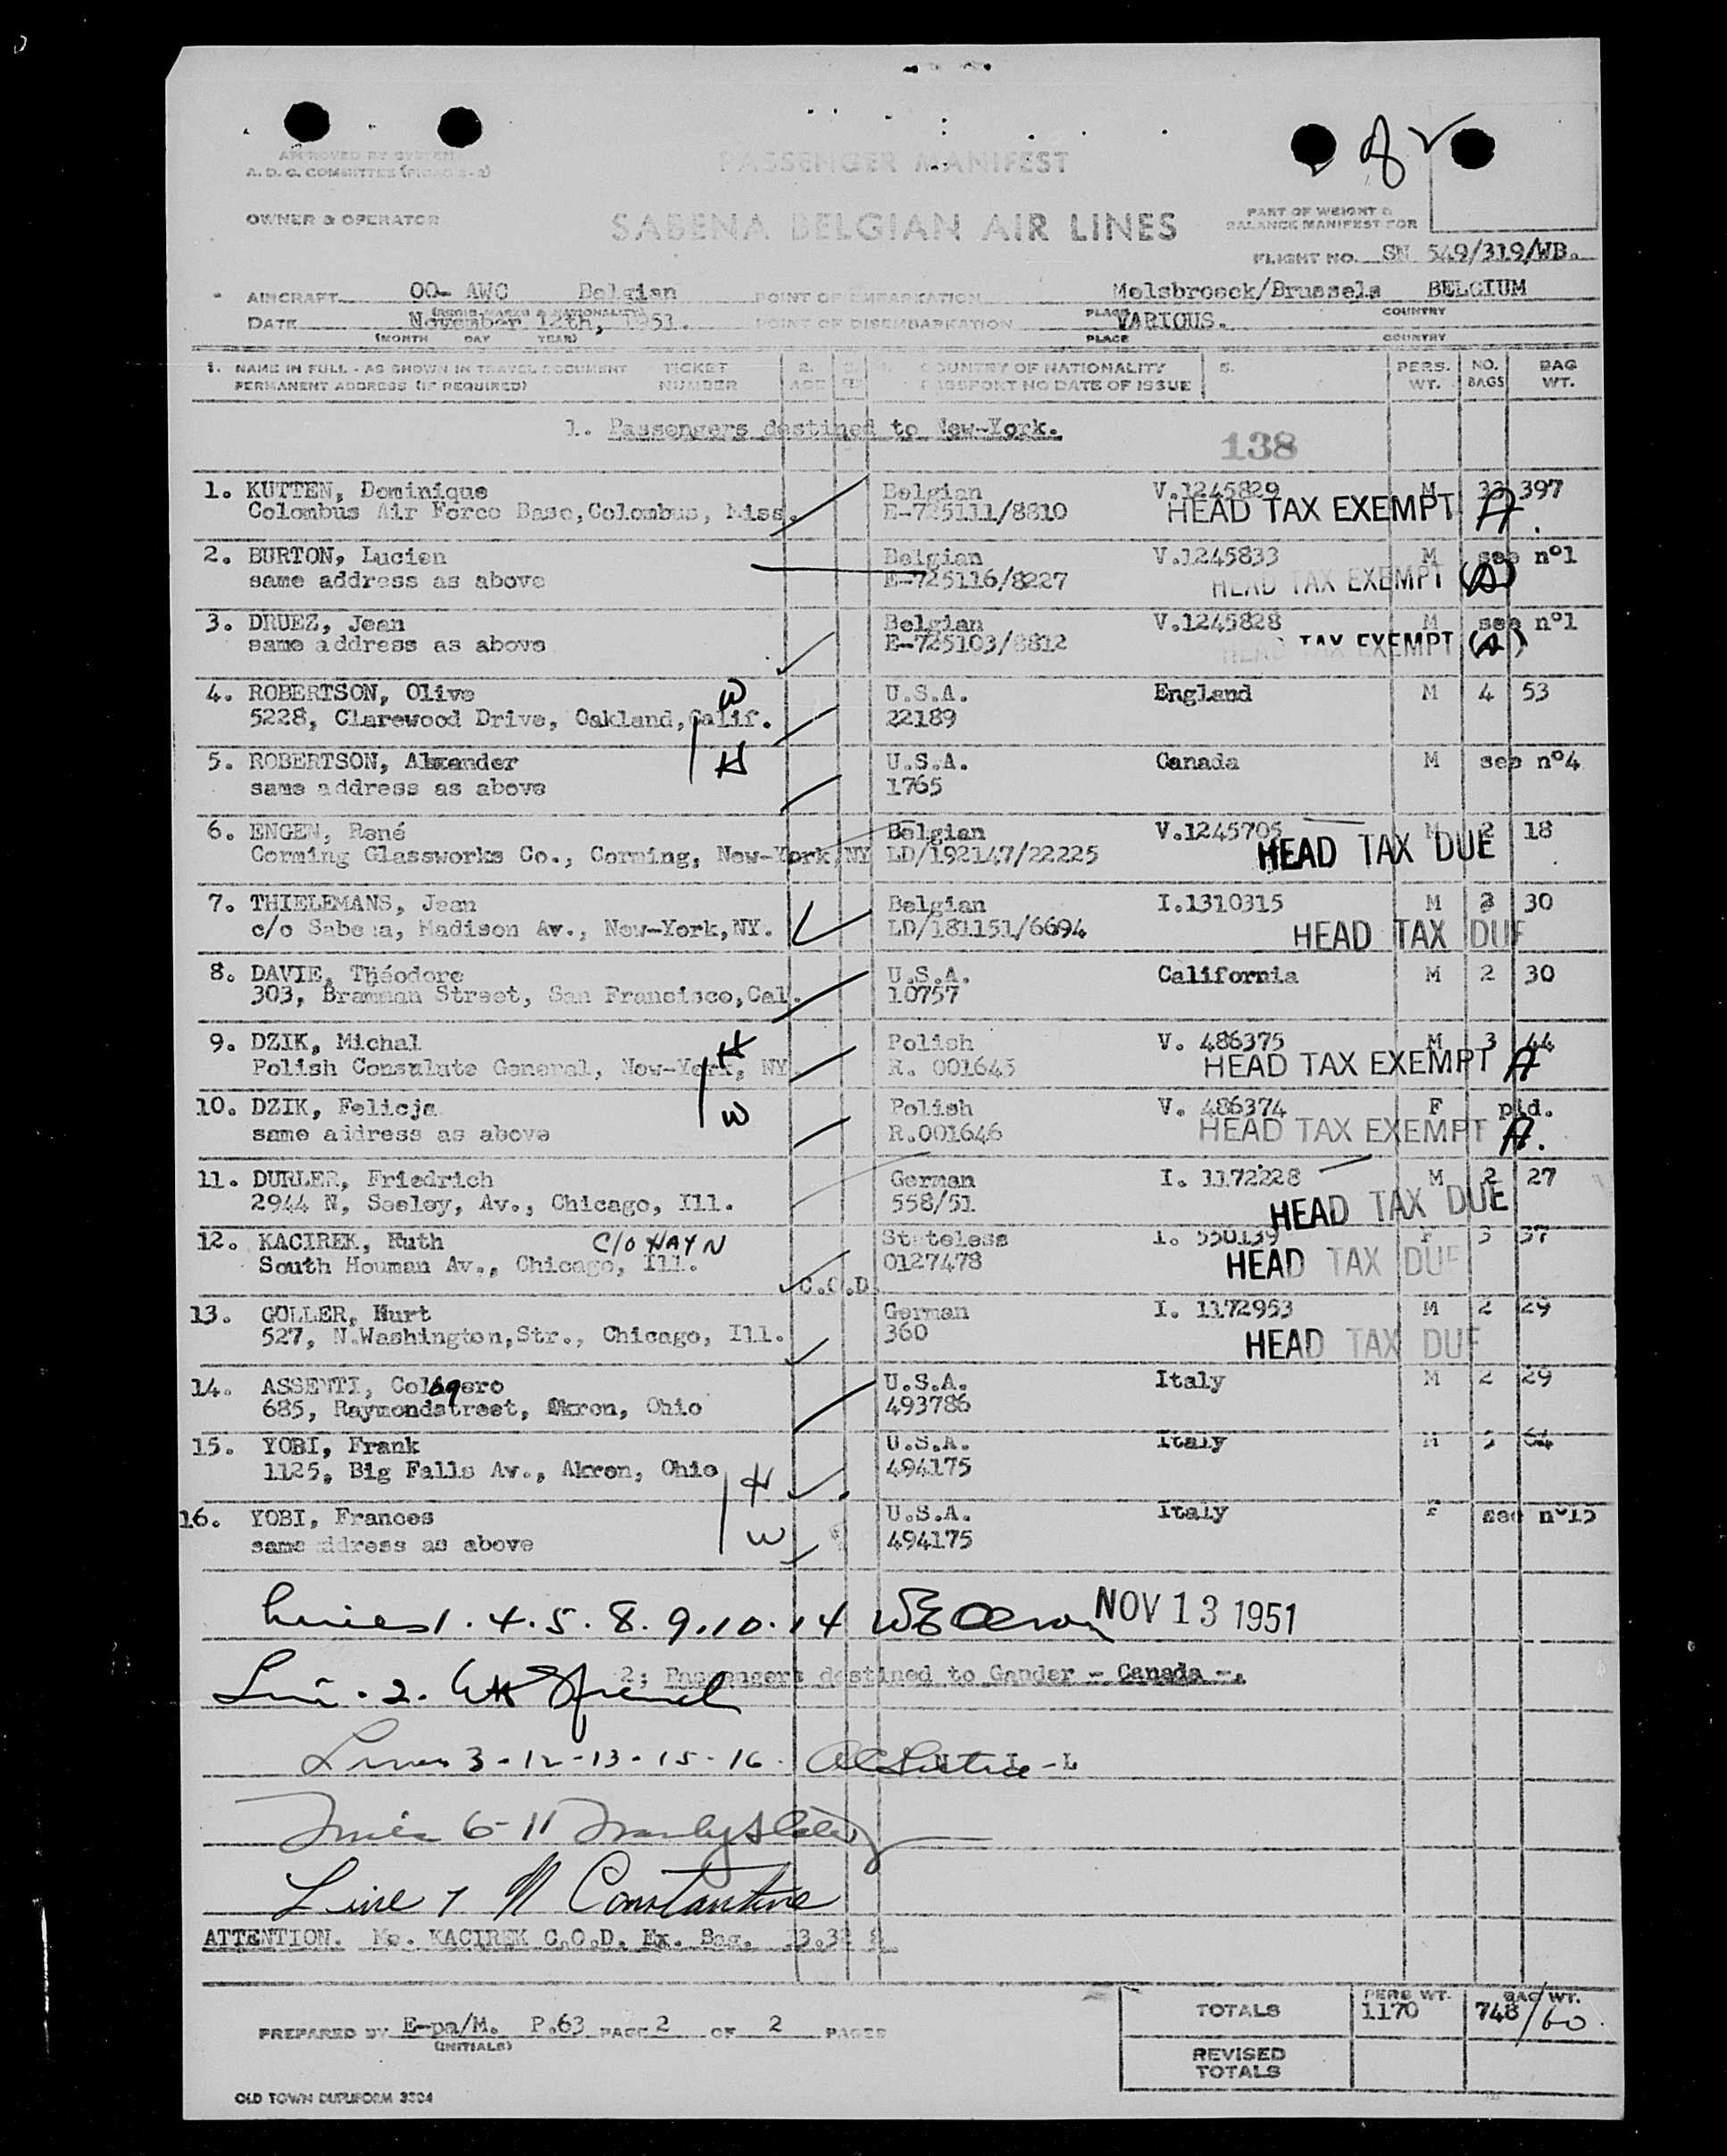 APPROVED BY SYSTEM
A. D. C. COMMITTEE
PASSENGER MANIFEST
OWNER & OPERATOR
SABENA BELGIAN AIR LINES
PART OF WEIGHT &
BALANCE MANIFEST FOR
FLIGHT NO. SN 549/319/WB.
AIRCRAFT OO- AWC Belgian POINT OF EMBARKATION Melsbroeck/Brussels BELGIUM
(REGIS. MARKS & NATIONALITY) PLACE COUNTRY
DATE November 12th, 1951. POINT OF DISEMBARKATION VARIOUS.
(MONTH DAY YEAR) PLACE COUNTRY
1. NAME IN FULL - AS SHOWN IN TRAVEL DOCUMENT TICKET 2. 3. 4. COUNTRY OF NATIONALITY 5. PERS. NO. BAG
PERMANENT ADDRESS (IF REQUIRED) NUMBER AGE SEX PASSPORT NO DATE OF ISSUE WT. BAGS WT.
1. Passengers destined to New-York.
138
1. KUTTEN, Dominique Belgian V.1245829 M 397
Colombus Air Force Base, Colombus, Miss. E-725111/8810 HEAD TAX EXEMPT A.
2. BURTON, Lucien Belgian V.1245833 M see n°1
same address as above E-725116/8227 HEAD TAX EXEMPT (A)
3. DRUEZ, Jean Belgian V.1245828 M see n°1
same address as above E-725103/8812 HEAD TAX EXEMPT (A)
4. ROBERTSON, Olive W U.S.A. England M 4 53
5228, Clarewood Drive, Oakland, Calif. 22189
5. ROBERTSON, Alexander H U.S.A. Canada M see n°4
same address as above 1765
6. ENGEN, René Belgian V.1245705 M 2 18
Corning Glassworks Co., Corning, New-York, NY LD/192147/22225 HEAD TAX DUE
7. THIELEMANS, Jean Belgian I.1310315 M 30
c/o Sabena, Madison Av., New-York, NY. LD/181151/6694 HEAD TAX DUE
8. DAVIE, Théodore U.S.A. California M 2 30
303, Bramman Street, San Francisco, Cal. 10757
9. DZIK, Michal H Polish V. 486375 M 3 44
Polish Consulate General, New-York, NY. R. 001645 HEAD TAX EXEMPT A
10. DZIK, Felicja W Polish V. 486374 F
same address as above R.001646 HEAD TAX EXEMPT A.
11. DURLER, Friedrich German I. 1172228 M 2 27
2944 N, Seeley, Av., Chicago, Ill. 558/51 HEAD TAX DUE
12. KACIREK, Ruth C/O HAYN Stateless I. 550139 F 3 37
South Houman Av., Chicago, Ill. 0127478 HEAD TAX DUE
C.O.D.
13. GOLLER, Kurt German I. 1172953 M 2 29
527, N.Washington, Str., Chicago, Ill. 360 HEAD TAX DUE
14. ASSENTI, Calogero U.S.A. Italy M 2 29
685, Raymondstreet, Akron, Ohio 493786
15. YOBI, Frank U.S.A. Italy M 64
1125, Big Falls Av., Akron, Ohio H 494175
16. YOBI, Frances U.S.A. Italy F see n°15
same address as above W 494175
Lines 1. 4. 5. 8. 9. 10. 14 NOV 13 1951
2; Passengers destined to Gander - Canada -.
Line . 2.
Lines 3-12-13-15-16.
N I L
Lines 6-11
Line 7 N Constantine
ATTENTION. Me. KACIREK C.O.D. Ex. Bag. 13.32 $.
TOTALS PERS WT. 1170 BAG WT. 748/60
PREPARED BY E-pa/M. P.63 PAGE 2 OF 2 PAGES
(INITIALS)
REVISED
TOTALS
OLD TOWN DUPLIFORM 3304